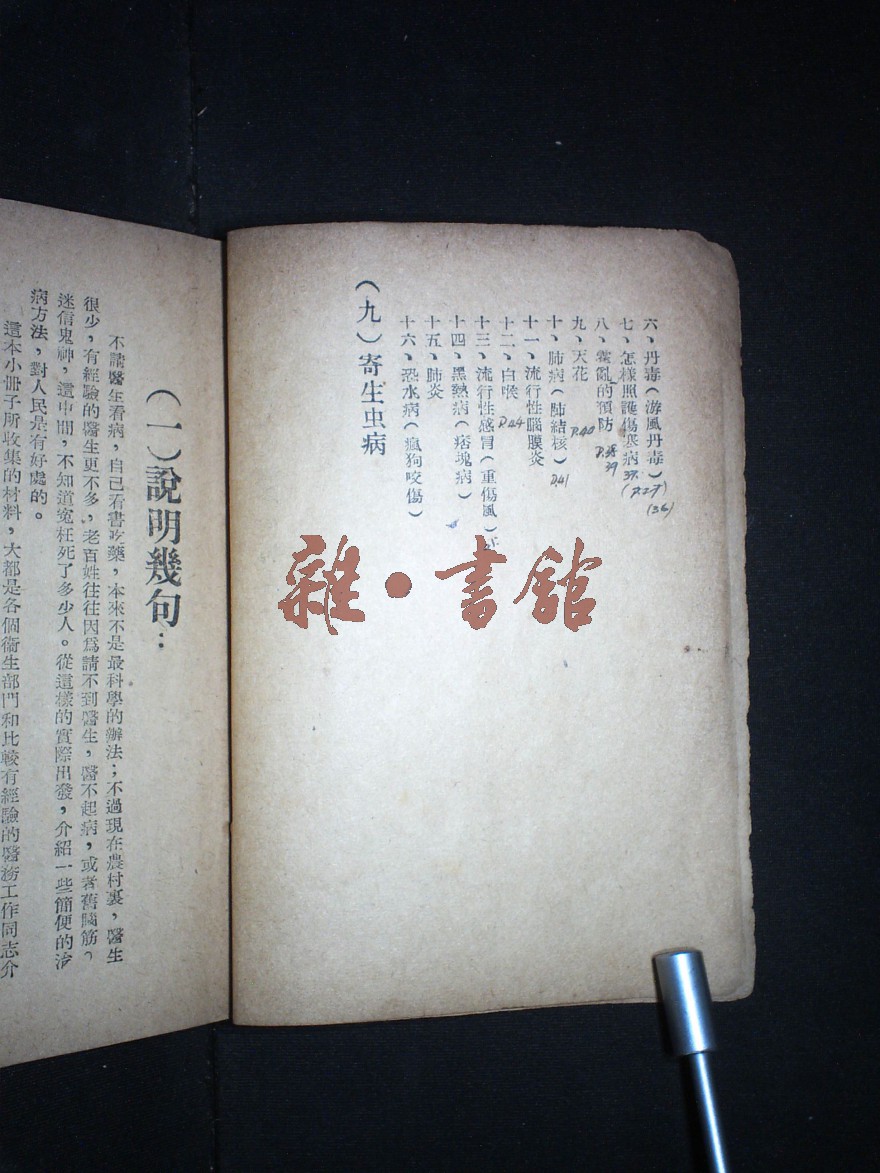 六、丹毒（游風丹毒）
(36)
七、怎樣照護傷寒病
37
(P.27)
八、霍亂的預防
39
九、天花
P.40
十、肺病（肺結核）
P.41
十一、流行性腦膜炎
十二、白喉
P.44
十三、流行性感冒（重傷風）
十四、黑熱病（痞塊病）
十五、肺炎
十六、恐水病（瘋狗咬傷）
（九）寄生虫病
雜·書館
（一）說明幾句：
不請醫生看病，自已看書吃藥，本來不是最科學的辦法；不過現在農村裏，醫生
很少，有經驗的醫生更不多，老百姓往往因爲請不到醫生，醫不起病，或者舊腦筋，
迷信鬼神，這中間，不知道冤枉死了多少人。從這樣的實際出發，介紹一些簡便的治
病方法，對人民是有好處的。
這本小冊子所收集的材料，大都是各個衛生部門和比較有經驗的醫務工作同志介